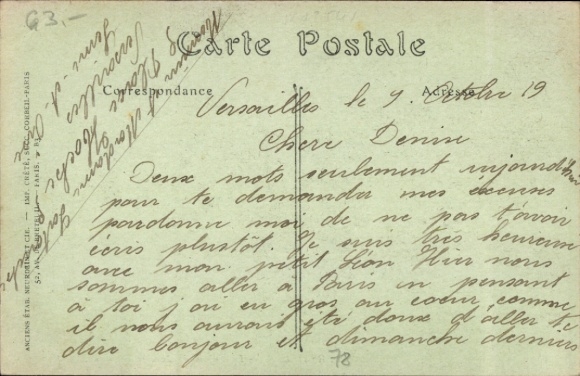 G3.-
Carte Postale
Correspondance
Adresse
Versailles le 9 Octobre 19
Chere Denise
Deux mots seulement
pour te demander mes excuses
pardonne moi de ne pas t'avoir
ecris plustôt. Je suis très heureuse
avec mon petit Léon Hier nous
sommes aller a Paris en pensant
à toi j'ai eu gros au coeur comme
il nous aurais été doux d'aller te
dire bonjour et dimanche derniers
78
ANCIENS ÉTAB. NEURDEIN ET CIE. — IMP. CRÉTÉ, SUCC. CORBEIL-PARIS
52, AV. DE BRETEUIL - PARIS.